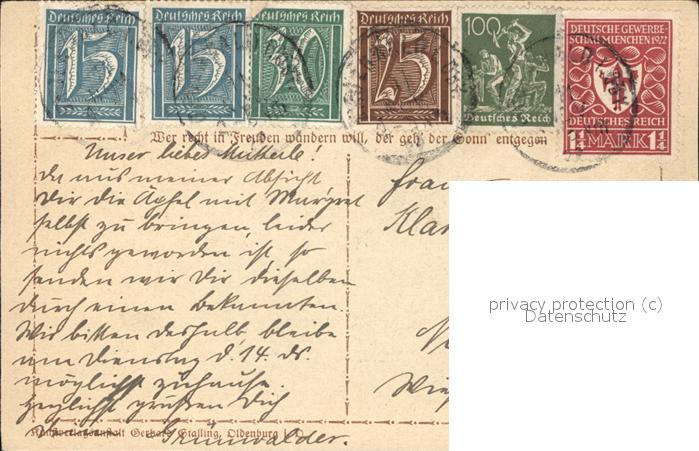 Deutsches Reich Deutsches Reich Deutsches Reich Deutsches Reich 100 DEUTSCHE GEWERBE-
15 15 50 25 SCHAU MÜNCHEN 1922
Deutsches Reich DEUTSCHES REICH
1¼ MARK 1¼
Wer recht in Freuden wandern will, der geh' der Sonn' entgegen
Unser liebes
da aus meiner Absicht
Dir die Äpfel mit Margret
selbst zu bringen, leider
nichts geworden ist, so
senden wir Dir dieselben
durch einen Bekannten.
Wir bitten deshalb, bleibe
am Dienstag d. 14. ds.
möglichst zuhause.
Herzlichst grüßen Dich
Grünwalder.
Frau
Kla
Wie
privacy protection (c)
Datenschutz
Kunstverlagsanstalt Gerhard Stalling, Oldenburg i. O.